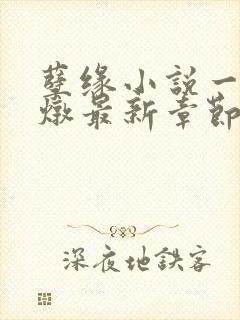 孽缘小説一
燉最新章節
深夜地鉄客